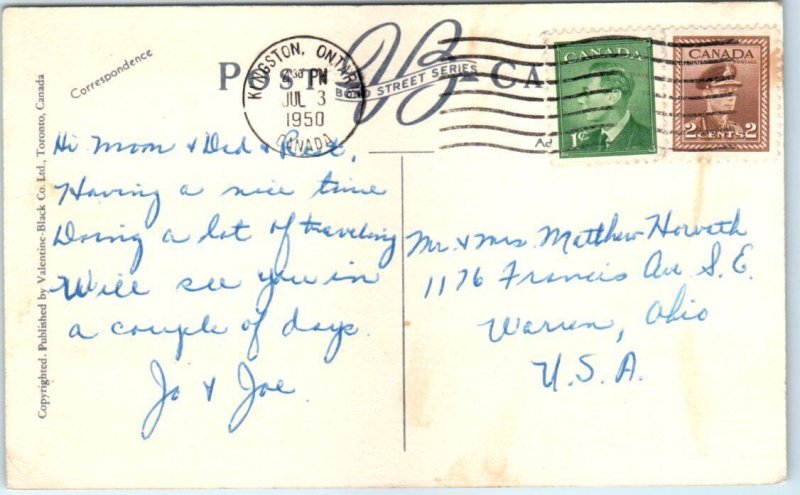 Correspondence
POST CA
VB
BOND STREET SERIES
KINGSTON, ONTARIO
PM
JUL 3
1950
CANADA
CANADA
1¢
CANADA
POSTAGE POSTES
2 CENTS 2
Ad
Hi Mom & Dad &
Having a nice time
Doing a lot of traveling
Will see you in
a couple of days.
Jo & Joe
Mr. & Mrs. Matthew Horvath
1176 Francis Ave S.E.
Warren, Ohio
U.S.A.
Copyrighted. Published by Valentine-Black Co. Ltd., Toronto, Canada